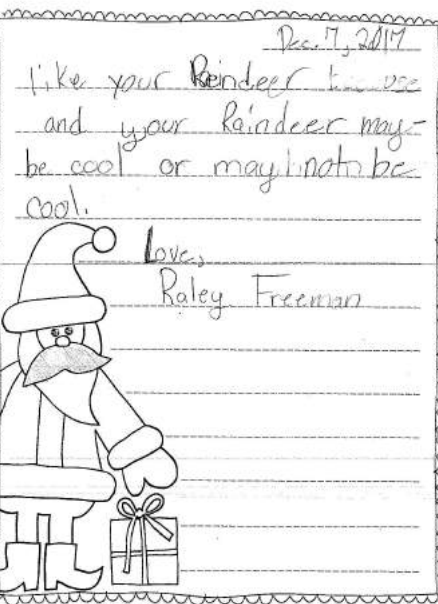 Dec. 7, 2017
like your Reindeer
and your Raindeer may-
be cool or may not be
cool.
Love,
Raley Freeman